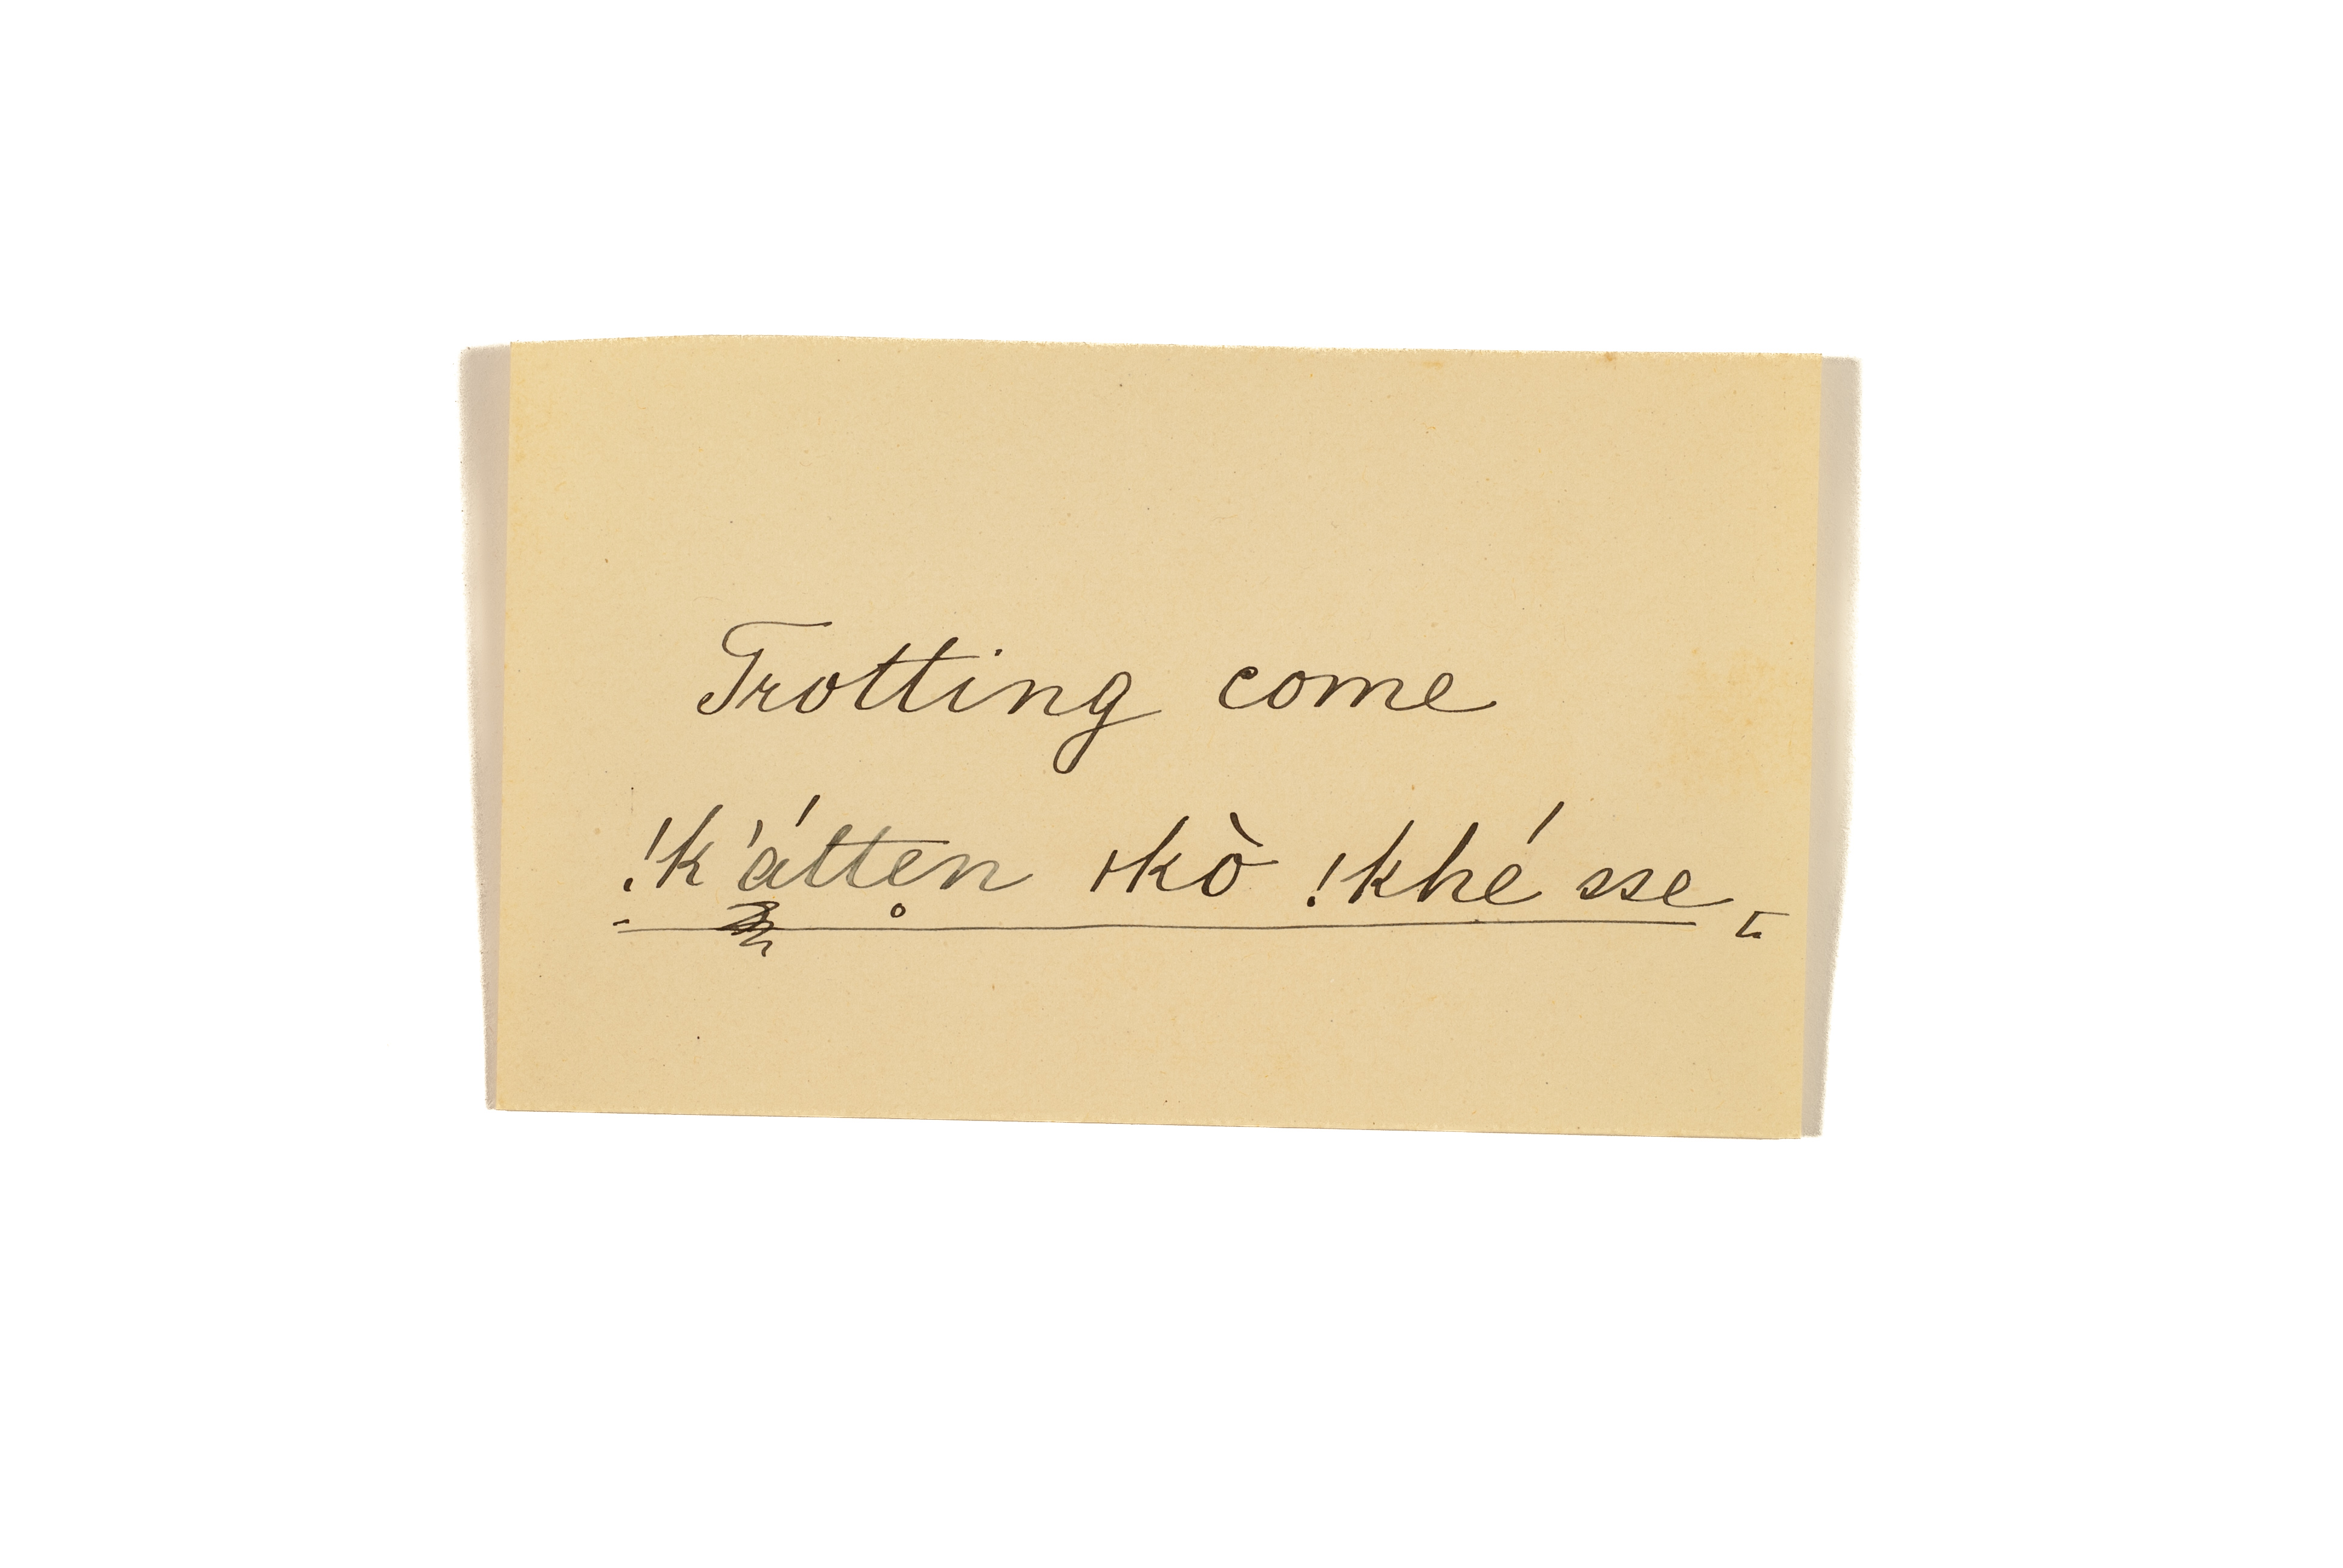 Trotting come
!k'átten̥ ıkò !khé sse